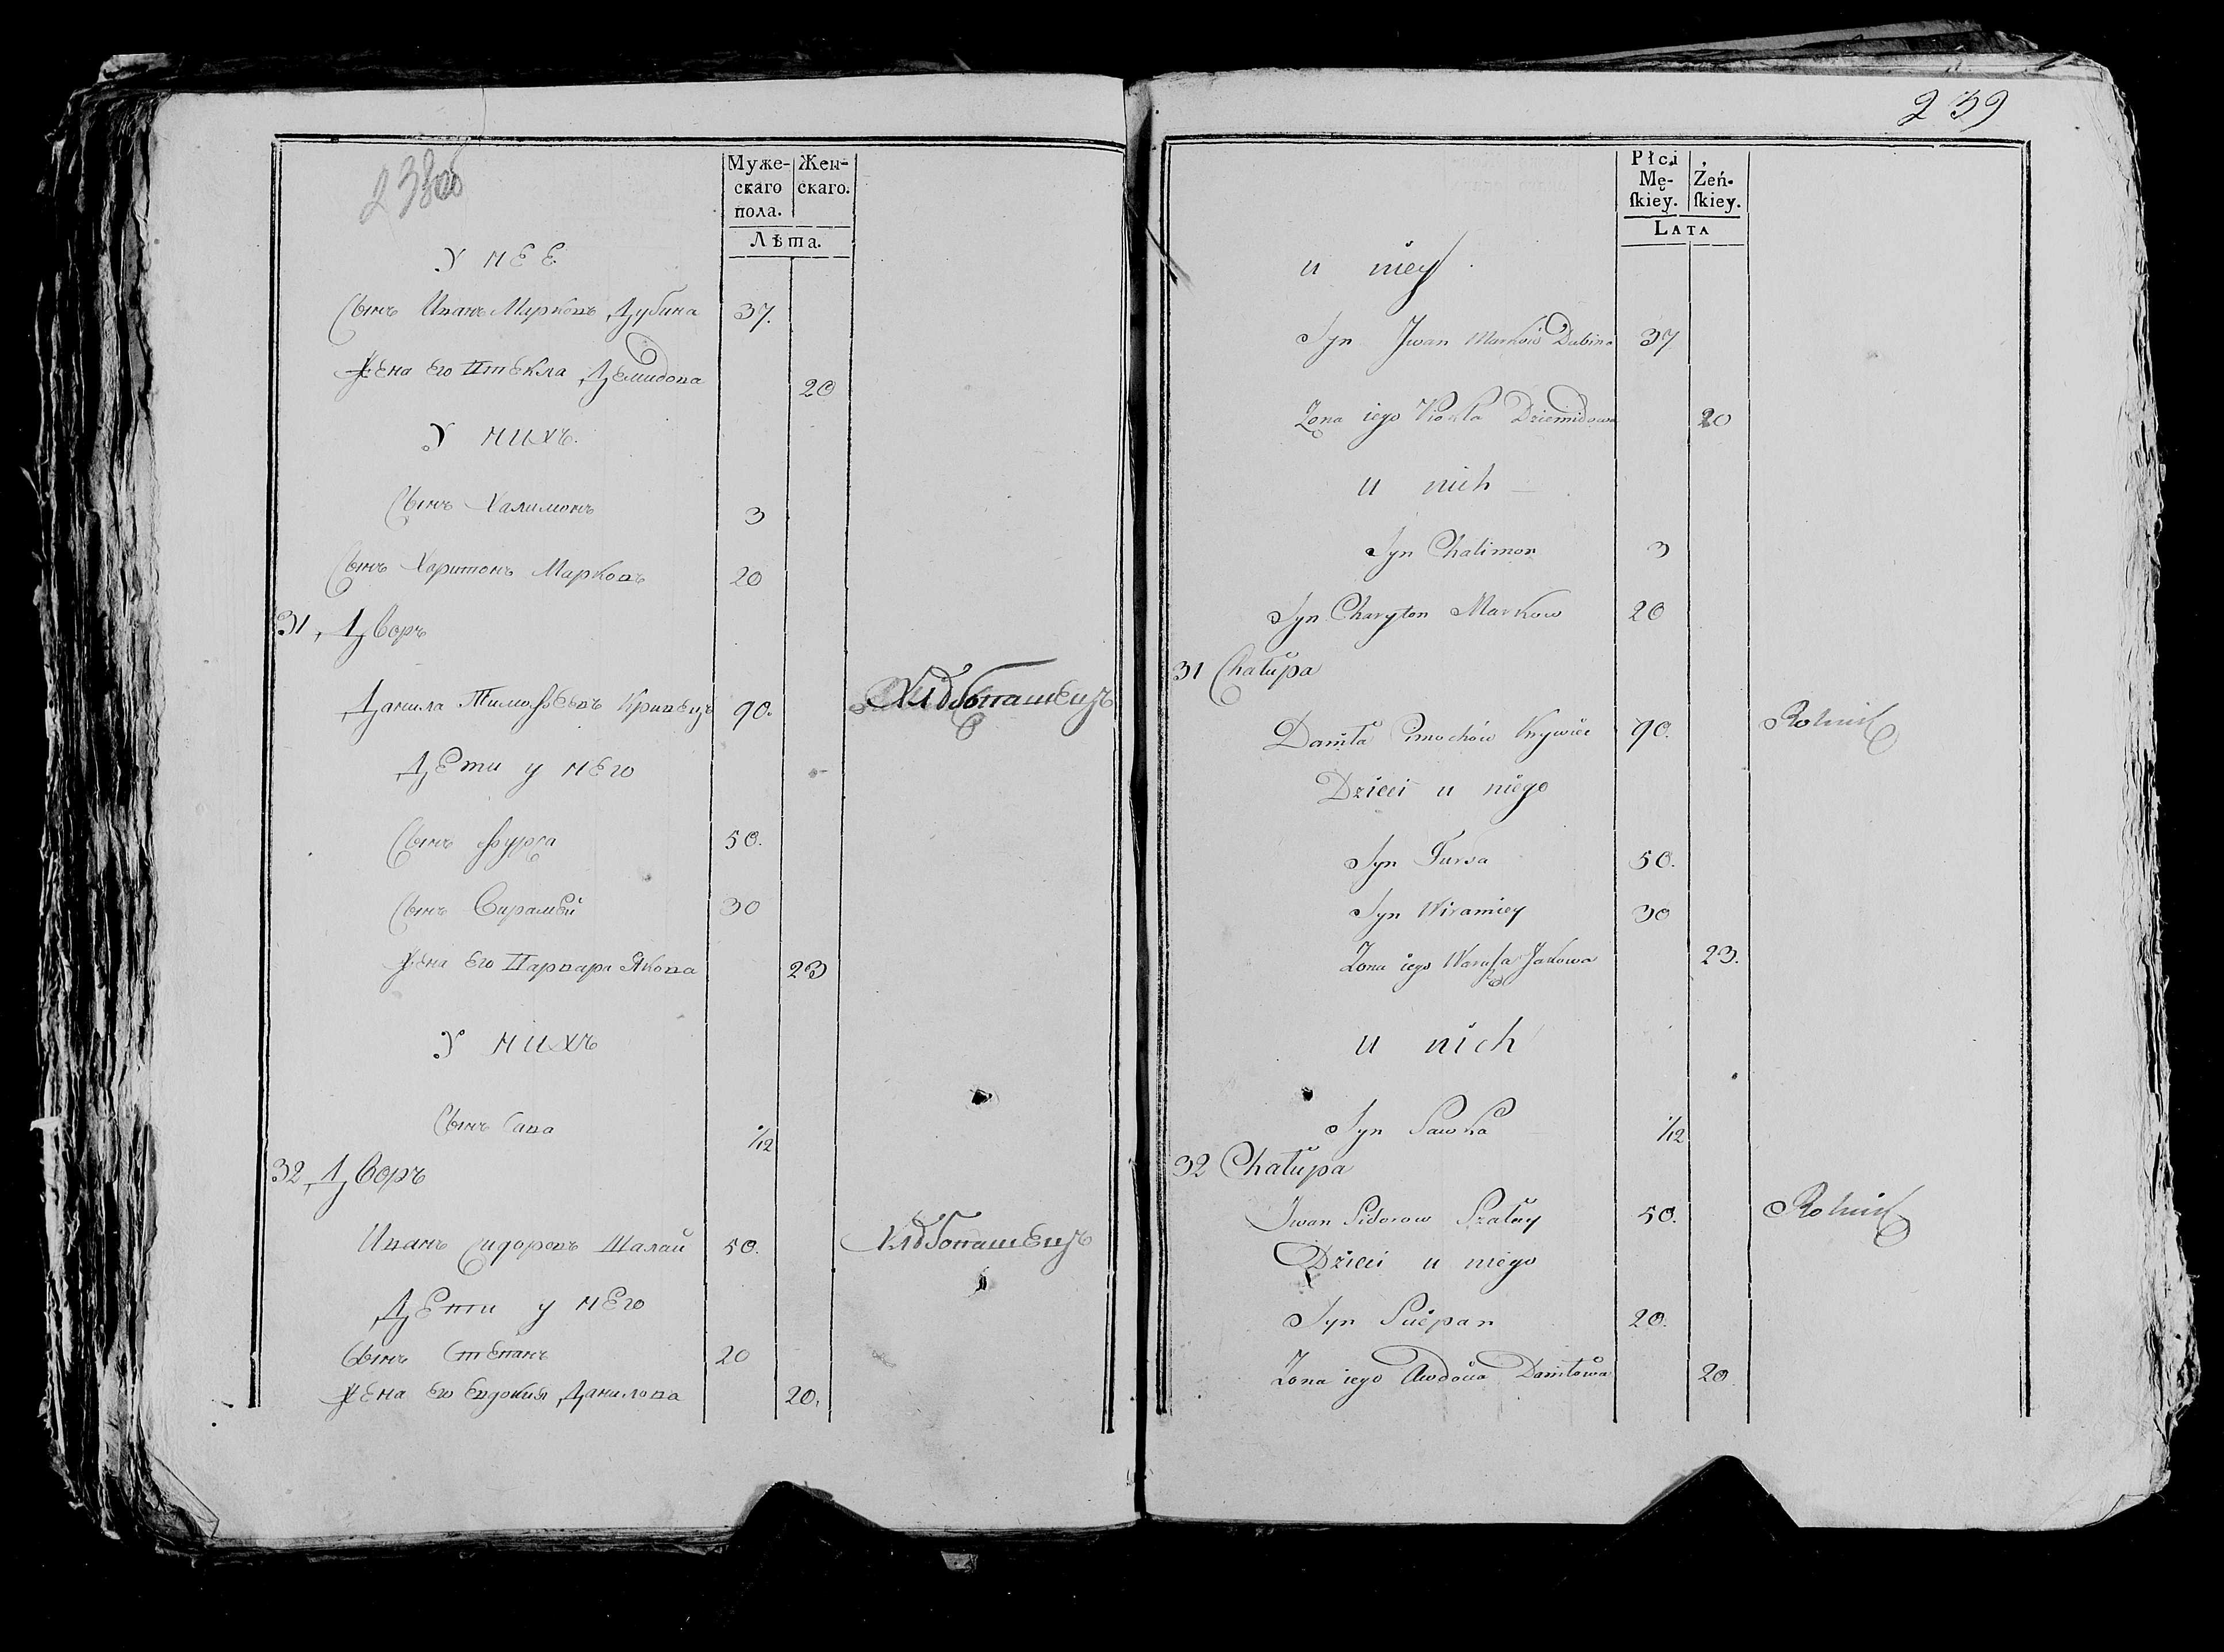 238об
Муже-
скаго
пола.
Жен-
скаго.
Лѣта.
У НЕЕ
Сынъ Иванъ Марковъ Дубина 37.
Жена Его Втекла Демидова 20
У НИХЪ.
Сынъ Халимонъ 3
Сынъ Харитонъ Марковъ 20
31, Дворъ
Данила Тимофѣевъ Кривецъ 90. Хлѣбопашецъ
Дети у него
Сынъ Фурса 50.
Сынъ Вирамѣй 30
Жена Его Варвара Якова 23
У НИХЪ
Сынъ Сава 1/12
32, Дворъ
Иванъ Сидоровъ Шалай 50. Хлѣбопашецъ
Дети у него
Сынъ Степанъ 20
Жена Его Евдокия Данилова 20.
239
Płci
Mę-
ſkiey.
Żeń-
ſkiey.
LATA
u niey.
Syn Jwan Marków Dubina 37
Żona iego Dziemidowa 20
u nich
Syn Chalimon 3
Syn Charyton Markow 20
31 Chałupa
Daniła Krywiec 90. Rolnik
Dzieci u niego
Syn Fursa 50.
Syn Wiramiey 30
Zona iego Jakowa 23.
u nich
Syn Sawka 1/12
32 Chałupa
Jwan Sidorow Szałay 50. Rolnik
Dzieci u niego
Syn Sciepan 20.
Zona iego Awdocia Daniłowa 20